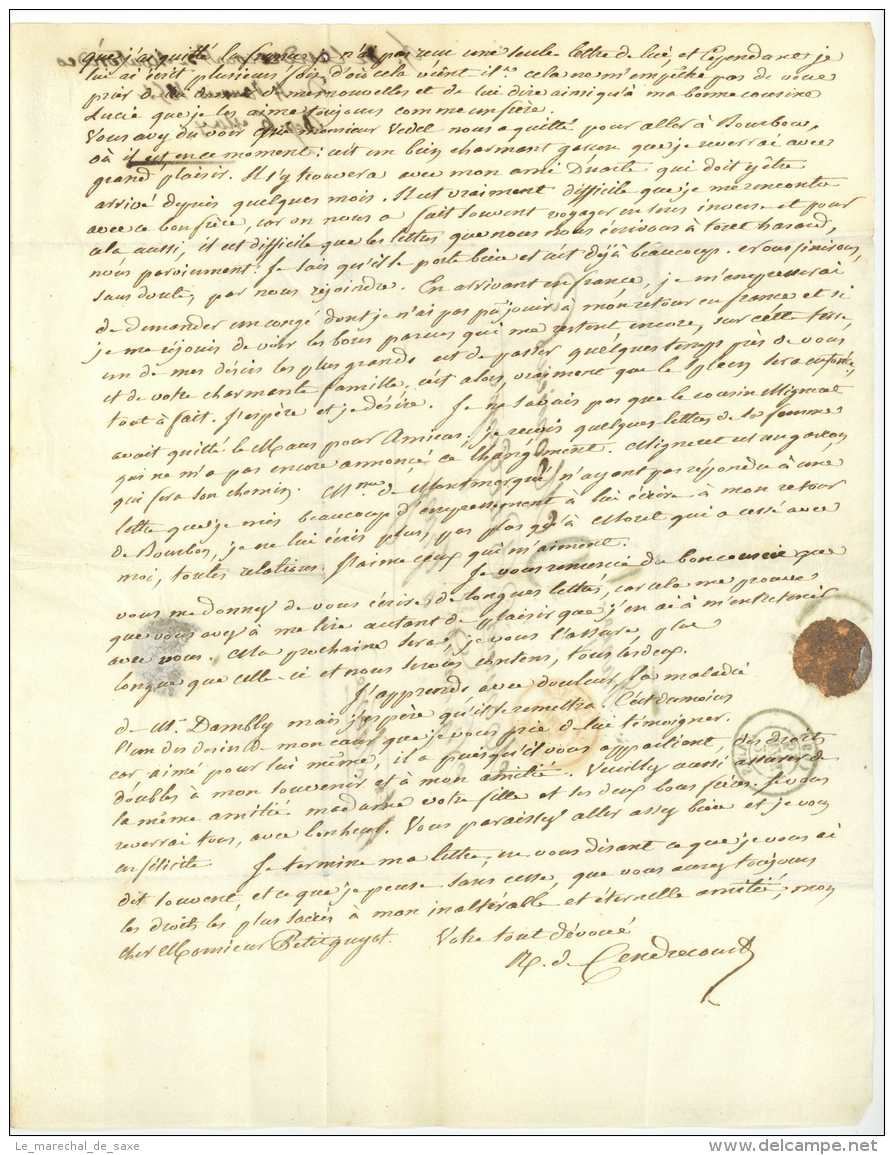 que j'ai quitté la france je n'ai pas reçu une seule lettre de lui, et cependant je
lui ai écrit plusieurs fois d'où cela vient il. cela ne m'empêche pas de vous
prier de lui donner de mes nouvelles et de lui dire ainsi qu'à ma bonne cousine
Lucie que je les aime toujours comme un frère.
Vous avez du voir que monsieur Vedel nous a quitté pour aller à Bourbon,
où il est en ce moment : c'est un bien charmant garçon que je reverrai avec
grand plaisir. Il s'y trouvera avec mon ami qui doit y être
arrivé depuis quelques mois. Il est vraiment difficile que je me rencontre
avec ce bon frère, car on nous a fait souvent voyager en sens inverse et pour
cela aussi, il est difficile que les lettres que nous nous écrivons à tout hasard,
nous parviennent. Je sais qu'il se porte bien et c'est déjà beaucoup. nous finirons,
sans doute, par nous rejoindre. En arrivant en france, je m'empresserai
de demander un congé dont je n'ai pas pu jouir à mon retour en france et si
je me réjouis de voir les bons parens qui me restent encore, sur cette terre,
un de mes désirs les plus grands est de passer quelques temps près de vous
et de votre charmante famille. c'est alors, vraiment que le spleen sera enfoncé,
tout à fait. J'espère et je désire. Je ne savais pas que le cousin Mignot
avait quitté le Mans pour Amiens; je reçois quelques lettres de sa femme
qui ne m'a pas encore annoncé ce changement. est un garçon
qui fera son chemin. Mme de Montmarqué n'ayant pas répondu à une
lettre que je mis beaucoup d'empressement à lui écrire à mon retour
de Bourbon, je ne lui écris plus, pas plus qu'à Morel qui a cessé avec
moi, toutes relations. J'aime ceux qui m'aiment.
Je vous remercie du bon conseil que
vous me donnez de vous écrire de longues lettres, car cela me prouve
que vous avez à me lire autant de plaisir que j'en ai à m'entretenir
avec vous. Ma prochaine sera, je vous l'assure, plus
longue que celle-ci et nous serons contens, tous les deux.
J'apprends avec douleur la maladie
de Mr. Dambly mais j'espère qu'il se remettra. C'est du moins
l'un des désirs de mon cœur que je vous prie de lui témoigner.
car aimé pour lui même, il a puisqu'il vous appartient, des droits
doubles à mon souvenir et à mon amitié. Veuillez aussi assurer de
la même amitié madame votre fille et les deux bons frères. Je vous
reverrai tous, avec bonheur. Vous paraissez aller assez bien et je vous
en félicite. Je termine ma lettre, en vous disant ce que je vous ai
dit souvent, et ce que je pense sans cesse, que vous aurez toujours
les droits les plus sacrés à mon inaltérable et éternelle amitié, mon
cher Monsieur Petitguyot. Votre tout dévoué
R. de Cendrecourt
Le_marechal_de_saxe
www.delcampe.net